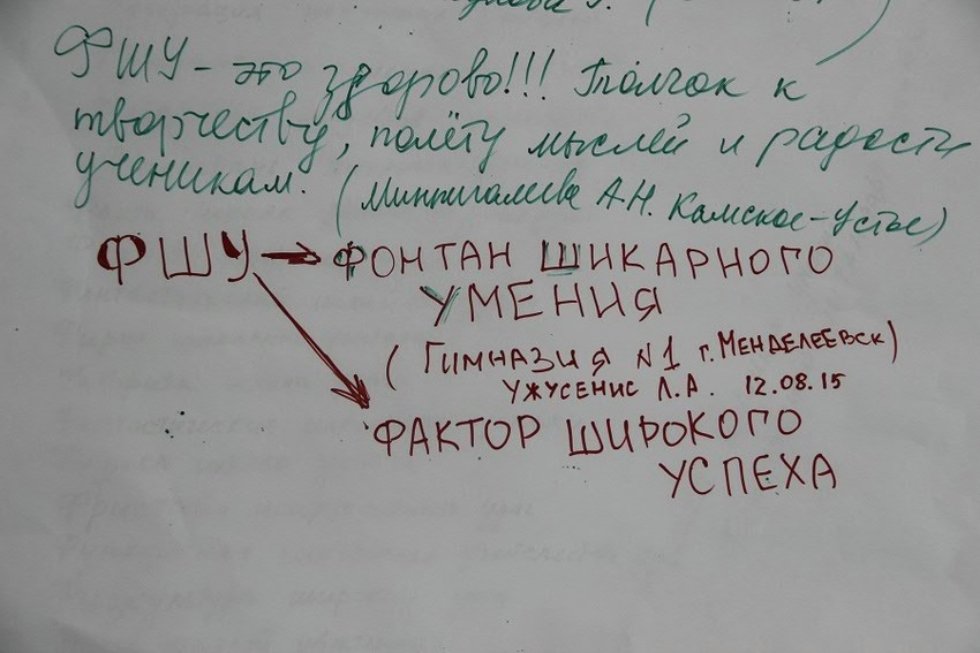 ФШУ - это здорово!!! Толчок к
творчеству, полёту мыслей и радости
ученикам. (Миннигалиева А.Н. Камское-Устье)
ФШУ → ФОНТАН ШИКАРНОГО
УМЕНИЯ
(ГИМНАЗИЯ №1 г. МЕНДЕЛЕЕВСК)
УЖУСЕНИС Л.А. 12.08.15
ФАКТОР ШИРОКОГО
УСПЕХА